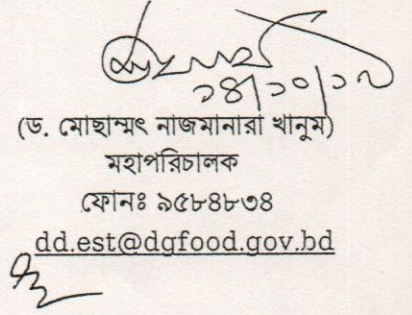 ১৪/১০/১৯
(ড. মোছাম্মৎ নাজমানারা খানুম)
মহাপরিচালক
ফোনঃ ৯৫৮৪৮৩৪
dd.est@dgfood.gov.bd